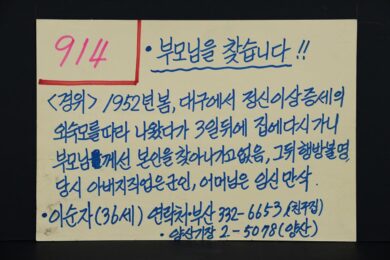 914
· 부모님을 찾습니다 !!
<경위> 1952년 봄, 대구에서 정신이상 증세의
외숙모를 따라 나왔다가 3일뒤에 집에 다시 가니
부모님께선 본인을 찾아나가고 없음, 그뒤 행방불명
당시 아버지직업은 군인, 어머님은 임신 만삭.
· 이순자 (36세) 연락처·부산 332-6653 (친구집)
· 양산기장 2-5078 (양산)